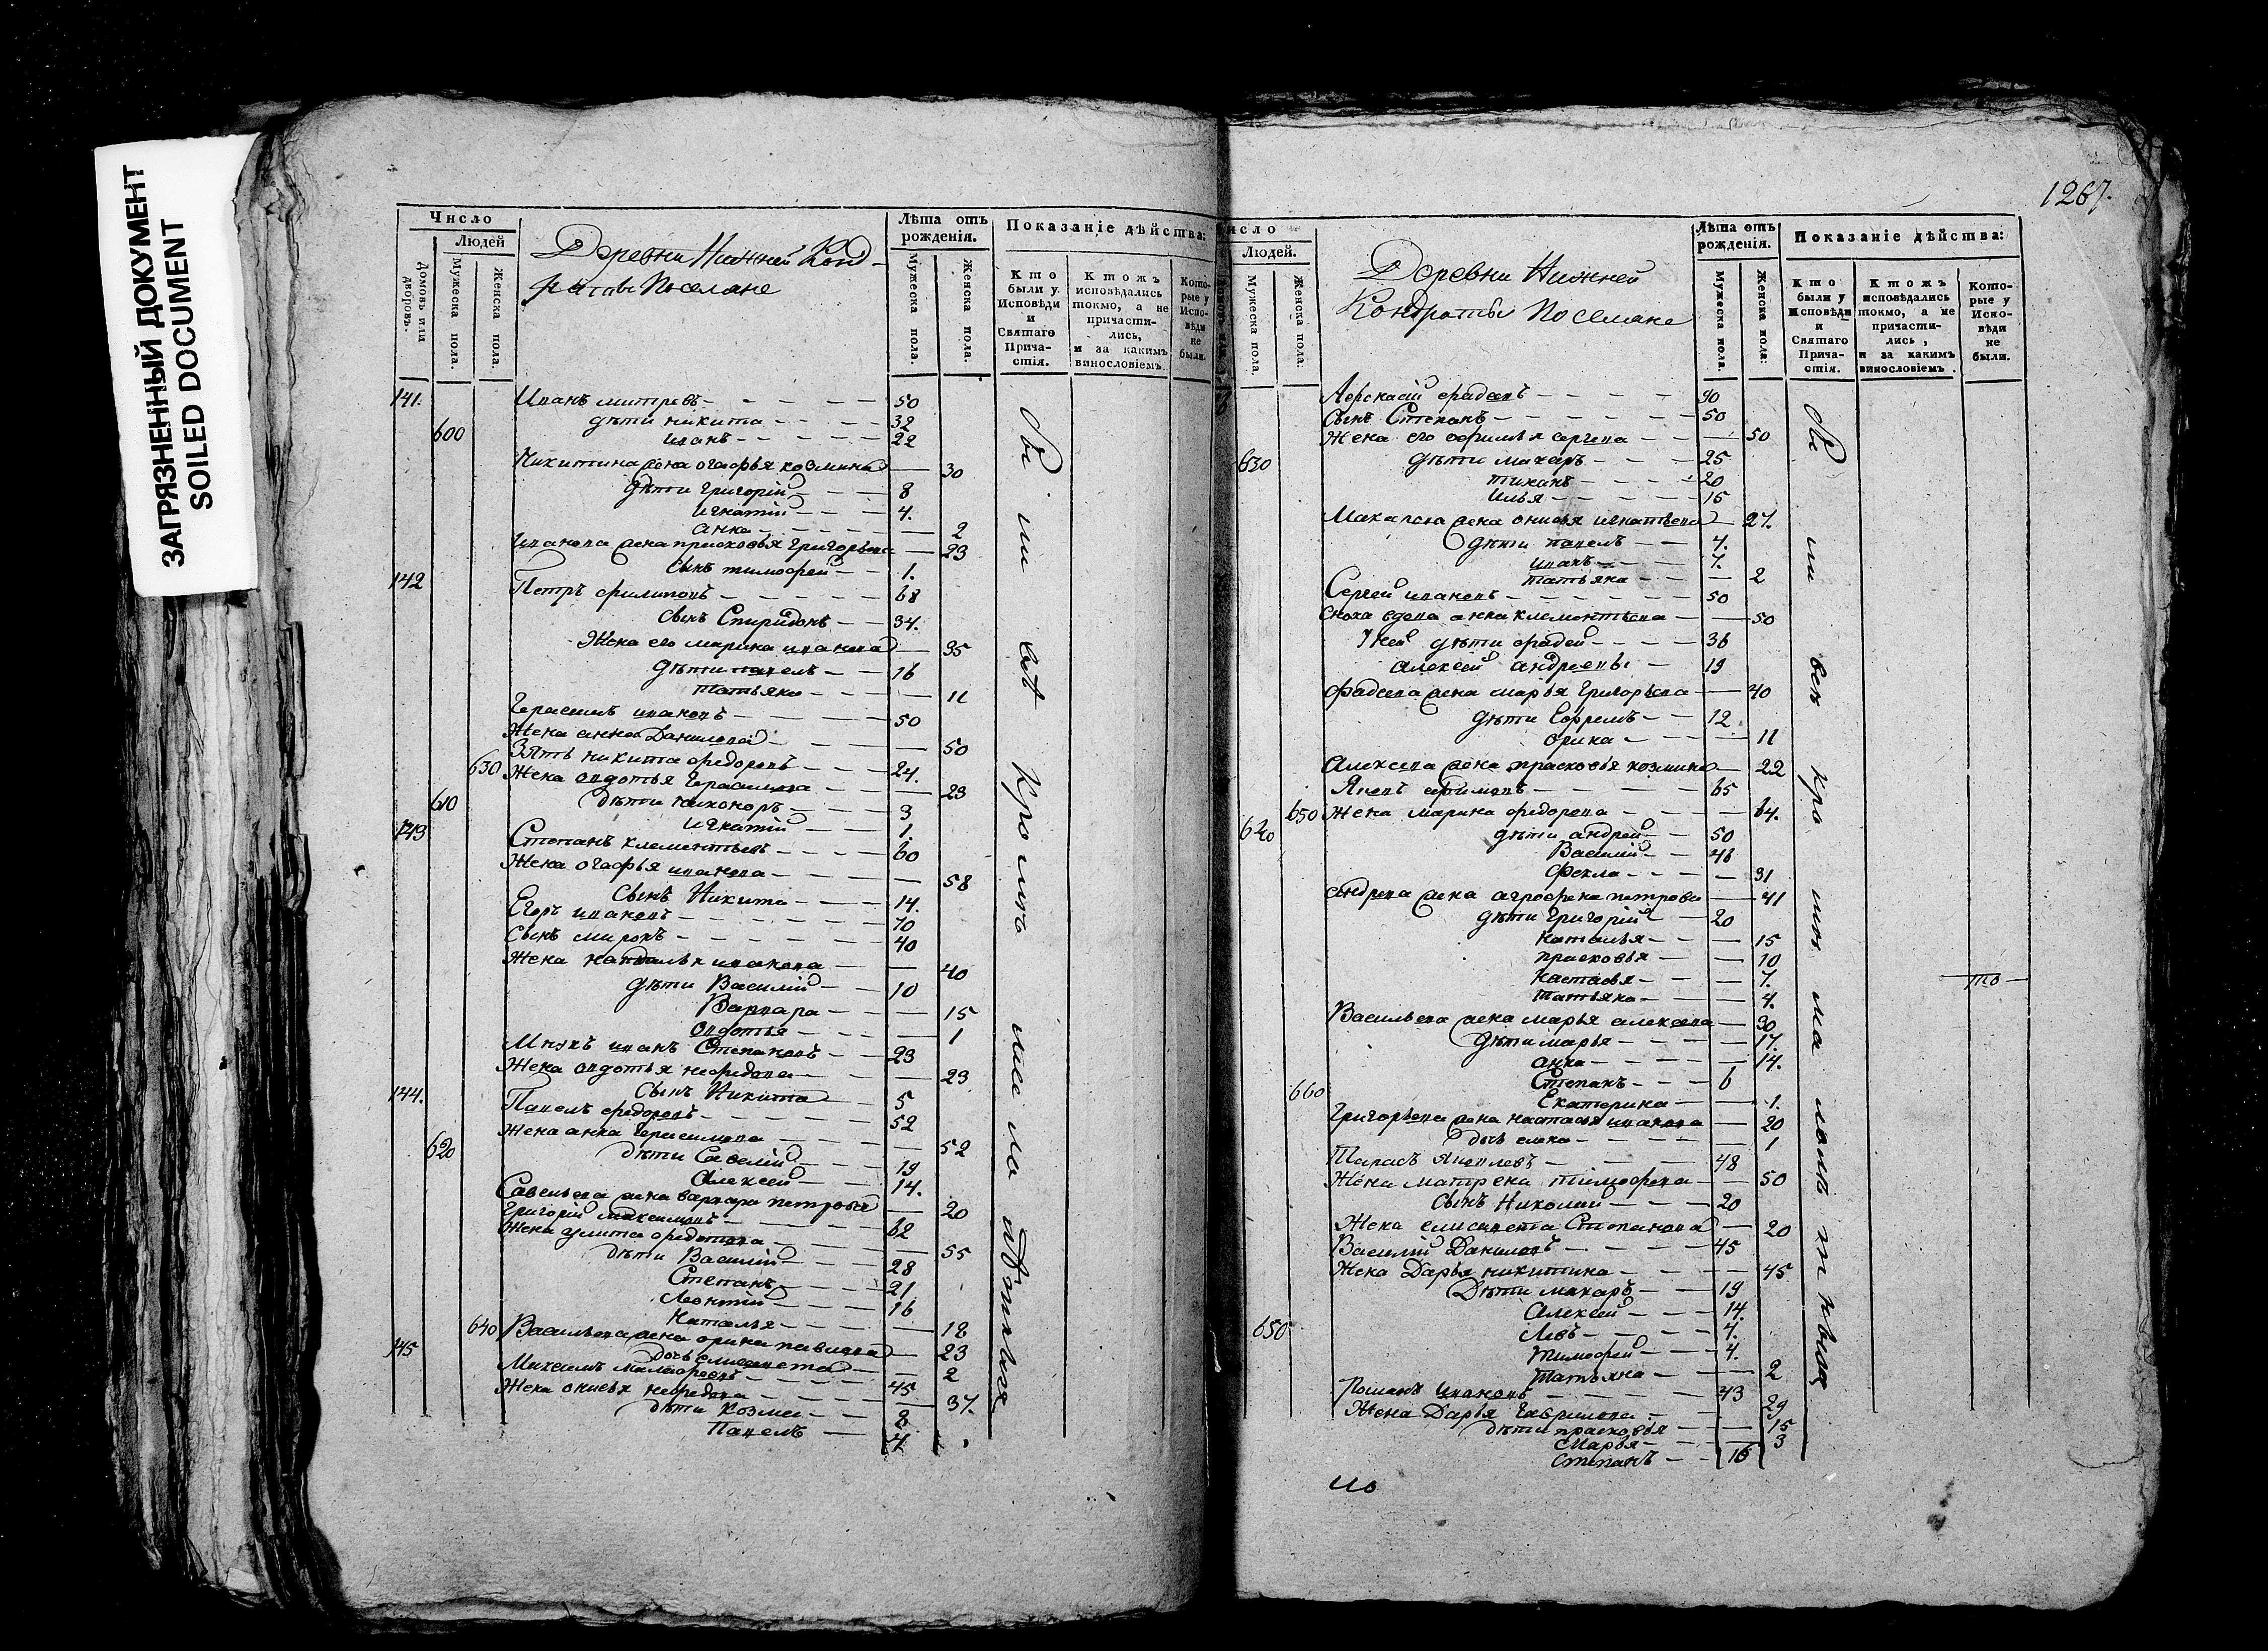 ЗАГРЯЗНЕННЫЙ ДОКУМЕНТ
SOILED DOCUMENT
Число
Людей
Домовъ или дворовъ.
Мужеска пола.
Женска пола.
Деревни Нижней Конд-
ратовы Поселяне
Лѣта отъ рожденія.
Мужеска пола.
Женска пола.
Показаніе дѣйства:
Кто были у Исповѣди и Святаго Причастія.
Ктожъ исповѣдались токмо, а не причастились, и за какимъ винословіемъ.
Которые у Исповѣди не были.
141. Иванъ митревъ 50
дѣти никита 32
600 иванъ 22
Никитина жена огафья козмина 30
дѣти григорій 8
игнатій 4.
анна 2
Иванова жена присковья григорьева 23
сынъ тимофей 1.
142 Петръ филиповъ 68
сынъ Спиридонъ 34.
Жена его марина иванова 35
дѣти павелъ 16
татьяна 11
Герасимъ ивановъ 50
Жена анна Данилова 50
Зять никита федоровъ 24.
630 Жена овдотья Герасимова 23
610 дѣти никоноръ 3
игнатій 1.
143 Степанъ клементьевъ 60
Жена огафья иванова 58
сынъ Никита 14.
Егоръ ивановъ 70
Сынъ миронъ 40
Жена наталья иванова 40
дѣти Василій 10
Варвара 15
овдотья 1
Внукъ иванъ Степановъ 23
Жена овдотья нефедова 23
сынъ Никита 5
144. Павелъ федоровъ 52
Жена анна герасимова 52
620 дѣти Савелій 19
Алексей 14.
Савельева жена варвара петрова 20
Григорій максимовъ 62
Жена улита федотова 55
дѣти Василій 28
Степанъ 21
Леонтій 16
Наталья 12
640 Васильева жена орина павлова 23
дочь елисавета 2
145 Михаилъ малафеевъ 45
Жена онисья нефедова 37.
дѣти козма 8
Павелъ 4
1267.
Число
Людей.
Мужеска пола.
Женска пола.
Деревни Нижней
Кондратовы Поселяне
Лѣта отъ рожденія.
Мужеска пола.
Женска пола:
Показаніе дѣйства:
Кто были у Исповѣди и Святаго Причастія.
Ктожъ исповѣдались токмо, а не причастились, и за какимъ винословіемъ.
Которые у Исповѣди не были.
фадеевъ 90
Сынъ Степанъ 50
Жена его офимья сергева 50
630 дѣти макаръ 25
20
илья 15
Макарова жена онисья игнатьева 27.
дѣти павелъ 4.
иванъ
татьяна 2
Сергей ивановъ 50
Сноха вдова анна клементьева 50
У ней дѣти фадей 36
алексей андреевы 19
Фадеева жена марья григорьева 40
дѣти Ефремъ 12
орина 11
Алексева жена прасковья козмина 22
Яковъ ефимовъ 65
650 Жена марина федорова 64.
640 дѣти андрей 50
Василій 46
Фекла 31
Андреева жена агрофена петрова 41
дѣти Григорій 20
наталья 15
прасковья 10
настасья 7.
татьяна 4.
Васильева жена марья алексева 30
дѣти марья 17.
анна 14.
Степанъ 6
660 Екатерина 1.
Григорьева жена настасья иванова 20
дочь елена 1
Тарасъ Яковлевъ 48
Жена матрена тимофева 50
сынъ Николай 20
Жена елисавета Степанова 20
Василій Даниловъ 45
Жена Дарья никитина 45
Дѣти макаръ 19
Алексей 14.
650 Левъ 4.
тимофей 4.
татьяна 2
Романъ Ивановъ 43
Жена Дарья Гаврилова 29
дѣти прасковья 15
Марья 3
Степанъ 15